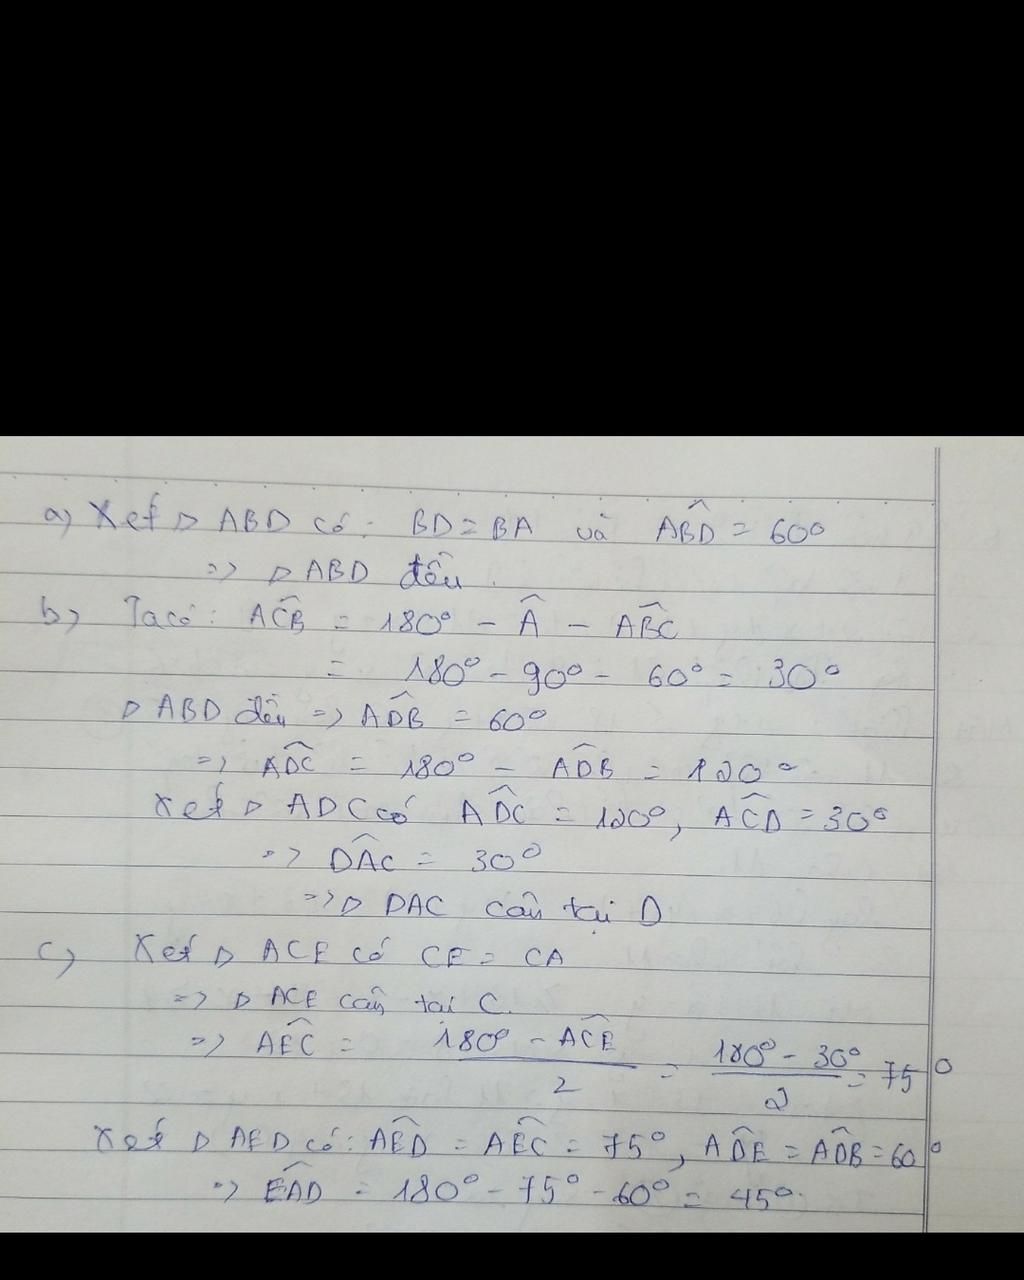 a) Xét △ ABD có: BD = BA và ABD̂ = 60°
=> △ ABD đều.
b) Ta có: ACB̂ = 180° - Â - ABĈ
= 180° - 90° - 60° = 30°
△ ABD đều => ADB̂ = 60°
=> ADĈ = 180° - ADB̂ = 120°
Xét △ ADC có ADĈ = 120°, ACD̂ = 30°
=> DAĈ = 30°
=> △ DAC cân tại D
c) Xét △ ACE có CE = CA
=> △ ACE cân tại C.
=> AEĈ = (180° - ACÊ)/2 = (180° - 30°)/2 = 75°
Xét △ AED có: AED̂ = AEĈ = 75°, ADÊ = ADB̂ = 60°
=> EAD̂ = 180° - 75° - 60° = 45°.